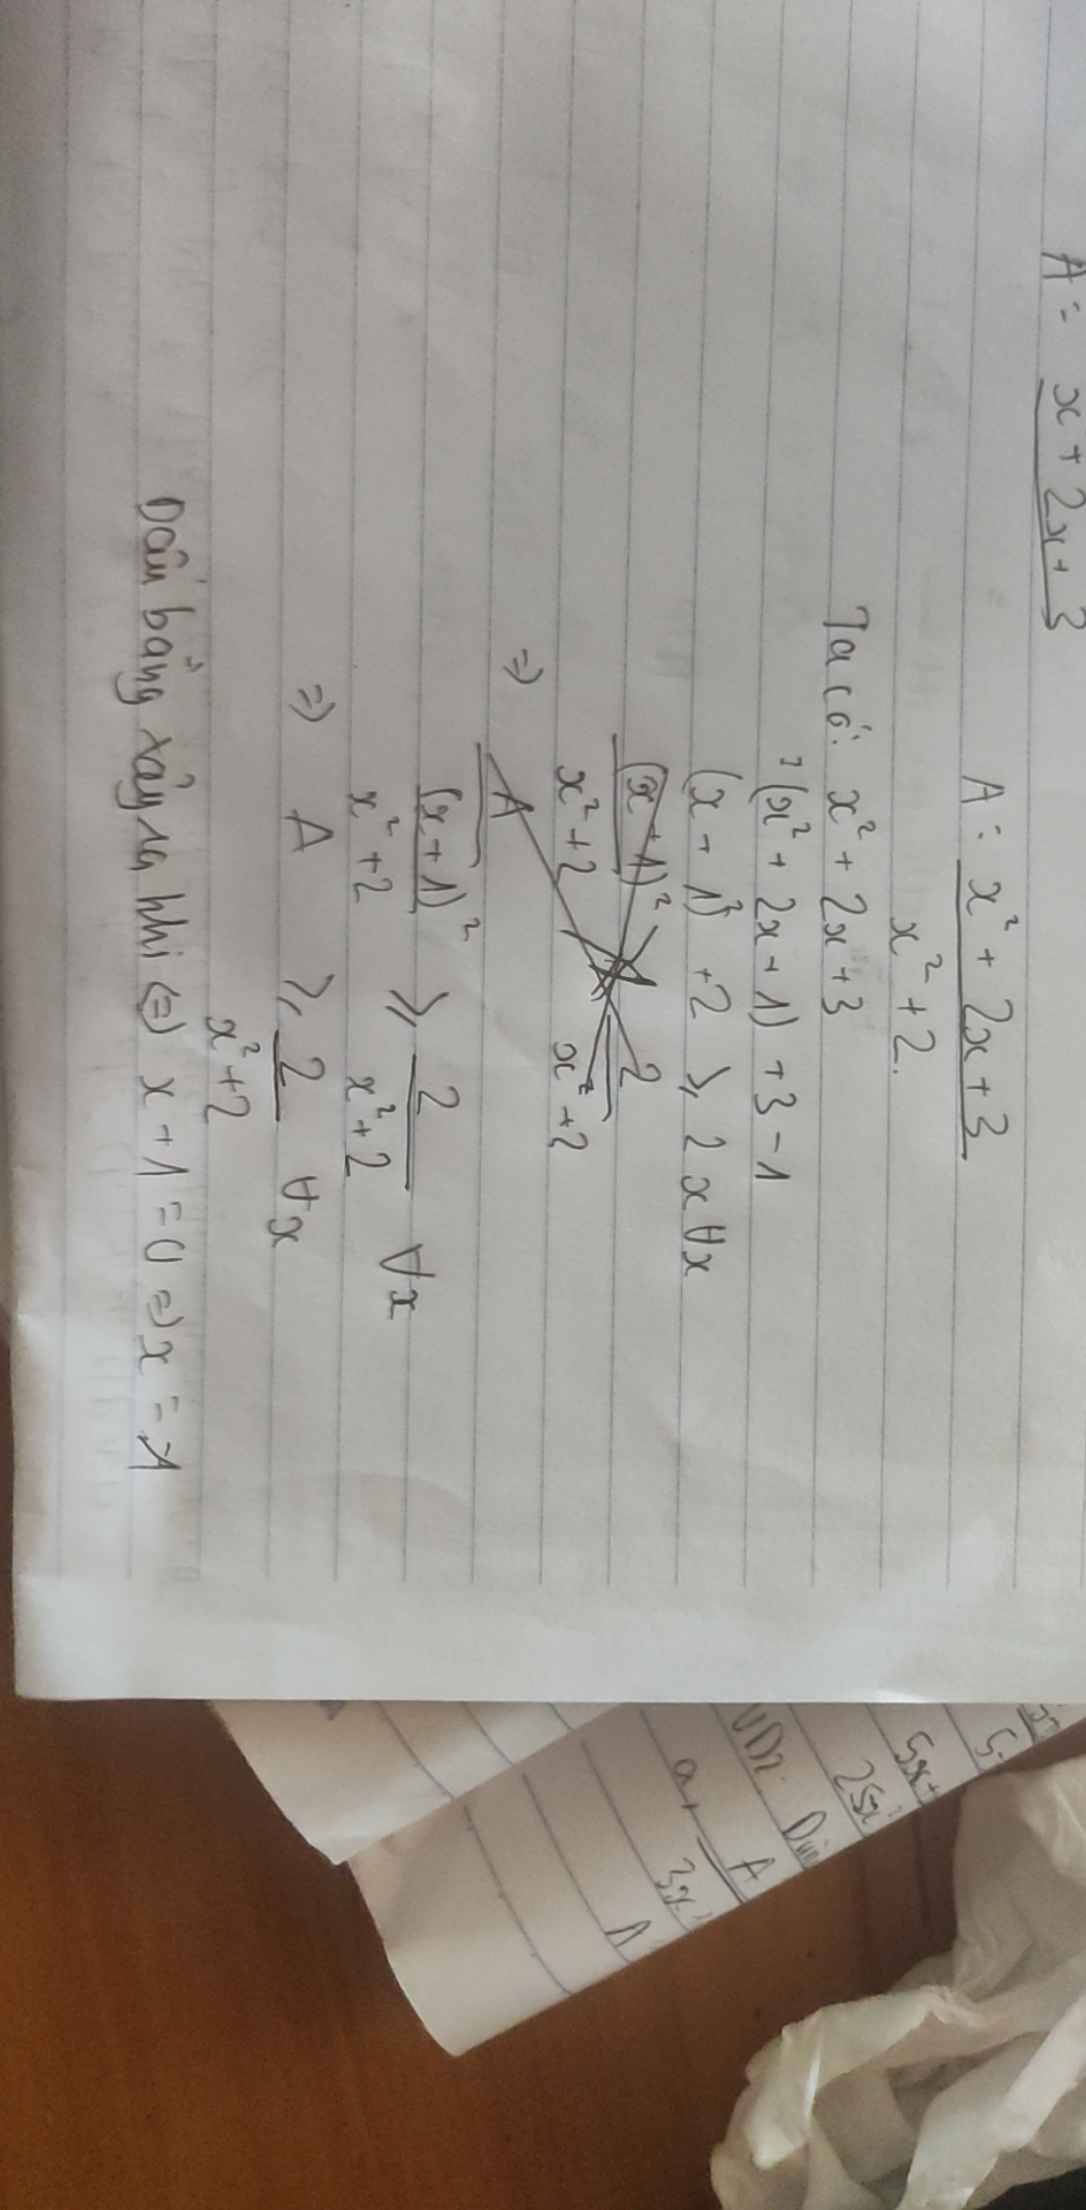 A = x + 2x + 3
A = x² + 2x + 3
x² + 2.
Ta có: x² + 2x + 3
= (x² + 2x + 1) + 3 - 1
(x + 1)² + 2 ≥ 2 x ∀x
(x + 1)² 2
x² + 2 x² + 2
=> A
(x + 1)² ≥ 2 ∀x
x² + 2 x² + 2
=> A ≥ 2 ∀x
x² + 2
Dấu bằng xảy ra khi (=) x + 1 = 0 => x = -1
5x +
25x²
VD2.
a, A
3x²
A